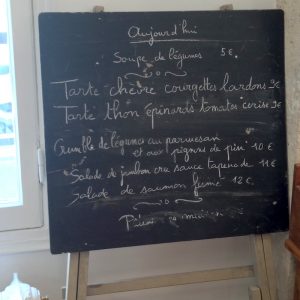 Aujourd'hui
Soupe de légumes 5€
Tarte chèvre courgettes lardons 9€
Tarte thon épinards tomates cerise 9€
Crumble de légumes au parmesan
et aux pignons de pin 10€
Salade de jambon cru sauce tapenade 11€
Salade de saumon fumé 12€